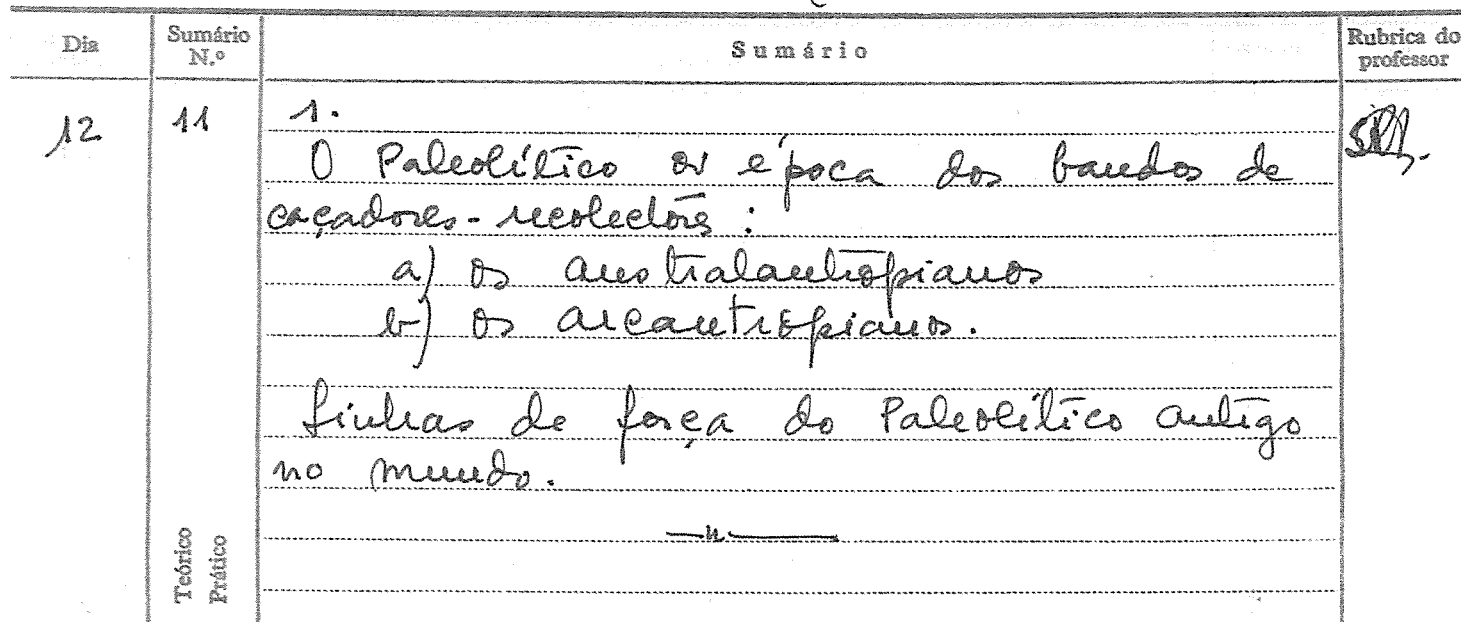 Dia
Sumário N.º
Sumário
Rubrica do professor
12
11
1.
O Paleolítico ou época dos bandos de
caçadores-recolectores:
a) os australantropianos
b) os arcantropianos.
Linhas de força do Paleolítico antigo
no mundo.
Teórico
Prático